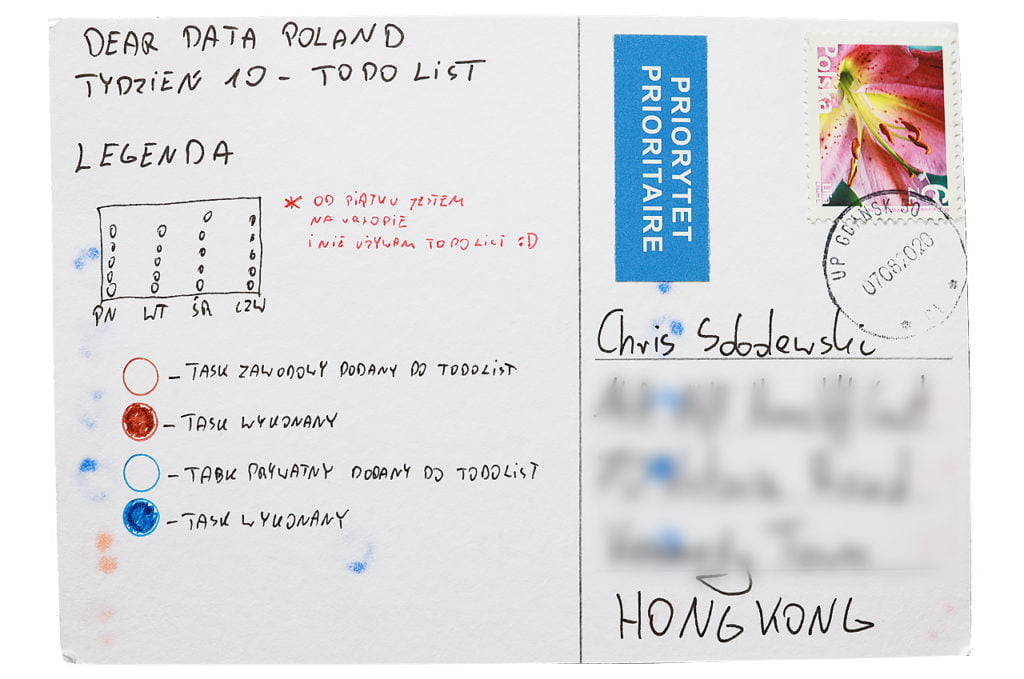 DEAR DATA POLAND
TYDZIEŃ 10 - TODO LIST
LEGENDA
* OD PIĄTKU JESTEM
NA URLOPIE
I NIE UŻYWAM TODOLIST :D
PN WT ŚR CZW
- TASK ZAWODOWY DODANY DO TODOLIST
- TASK WYKONANY
- TASK PRYWATNY DODANY DO TODOLIST
- TASK WYKONANY
PRIORYTET
PRIORITAIRE
Polska
UP GDAŃSK 50
07082020
Chris Sobolewski
HONG KONG